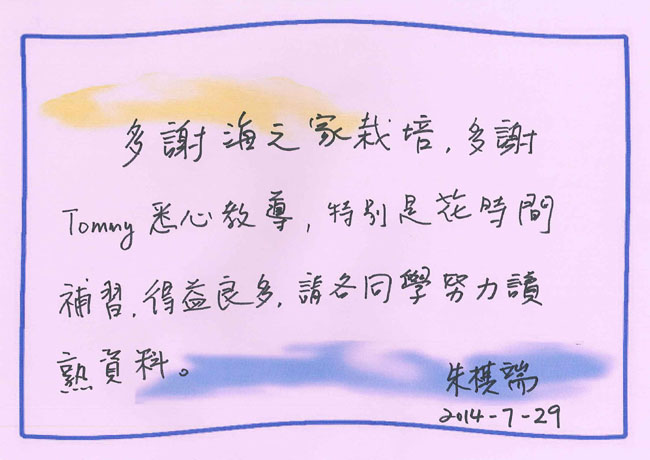 多謝海之家栽培，多謝
Tommy 悉心教導，特別是花時間
補習，得益良多，請各同學努力讀
熟資料。
朱棋端
2014-7-29